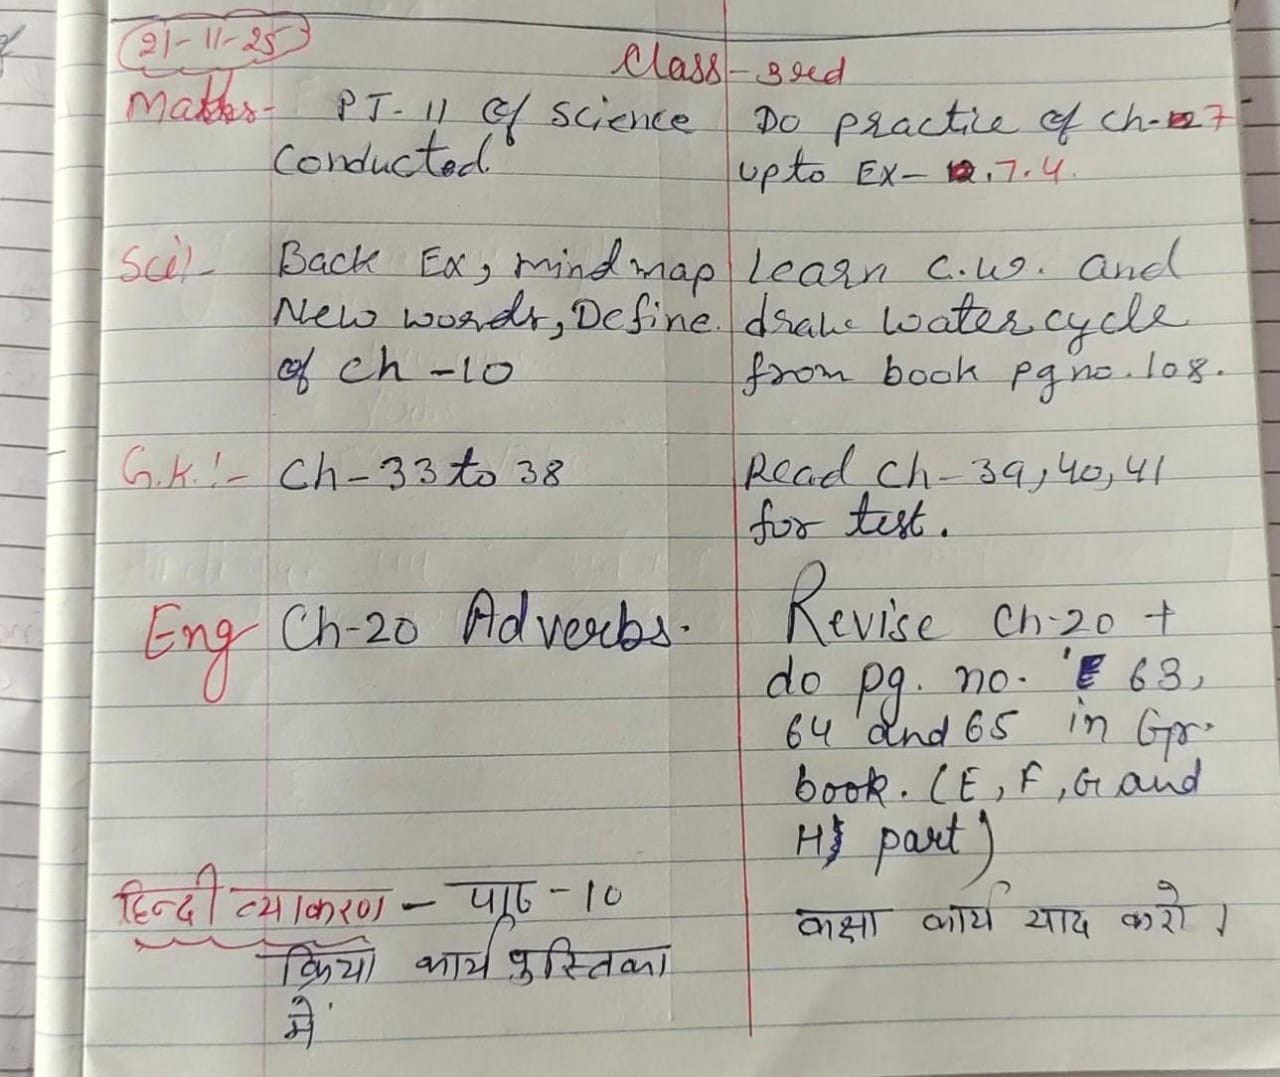 21-11-25
Class-3rd
Maths- PT-11 of science Do practice of ch-7
conducted. upto Ex- 7.4.
Sci!- Back Ex, mind map Learn c.w. and
New words, Define. draw water cycle
of ch-10 from book pg no. 108.
G.K.!- Ch-33 to 38 Read ch- 39, 40, 41
for test.
Eng Ch-20 Adverbs. Revise Ch-20 +
do pg. no. 63,
64 and 65 in Gr.
book. (E, F, G and
H part)
हिन्दी व्याकरण - पाठ-10 कक्षा कार्य याद करो।
क्रिया कार्य पुस्तिका
में